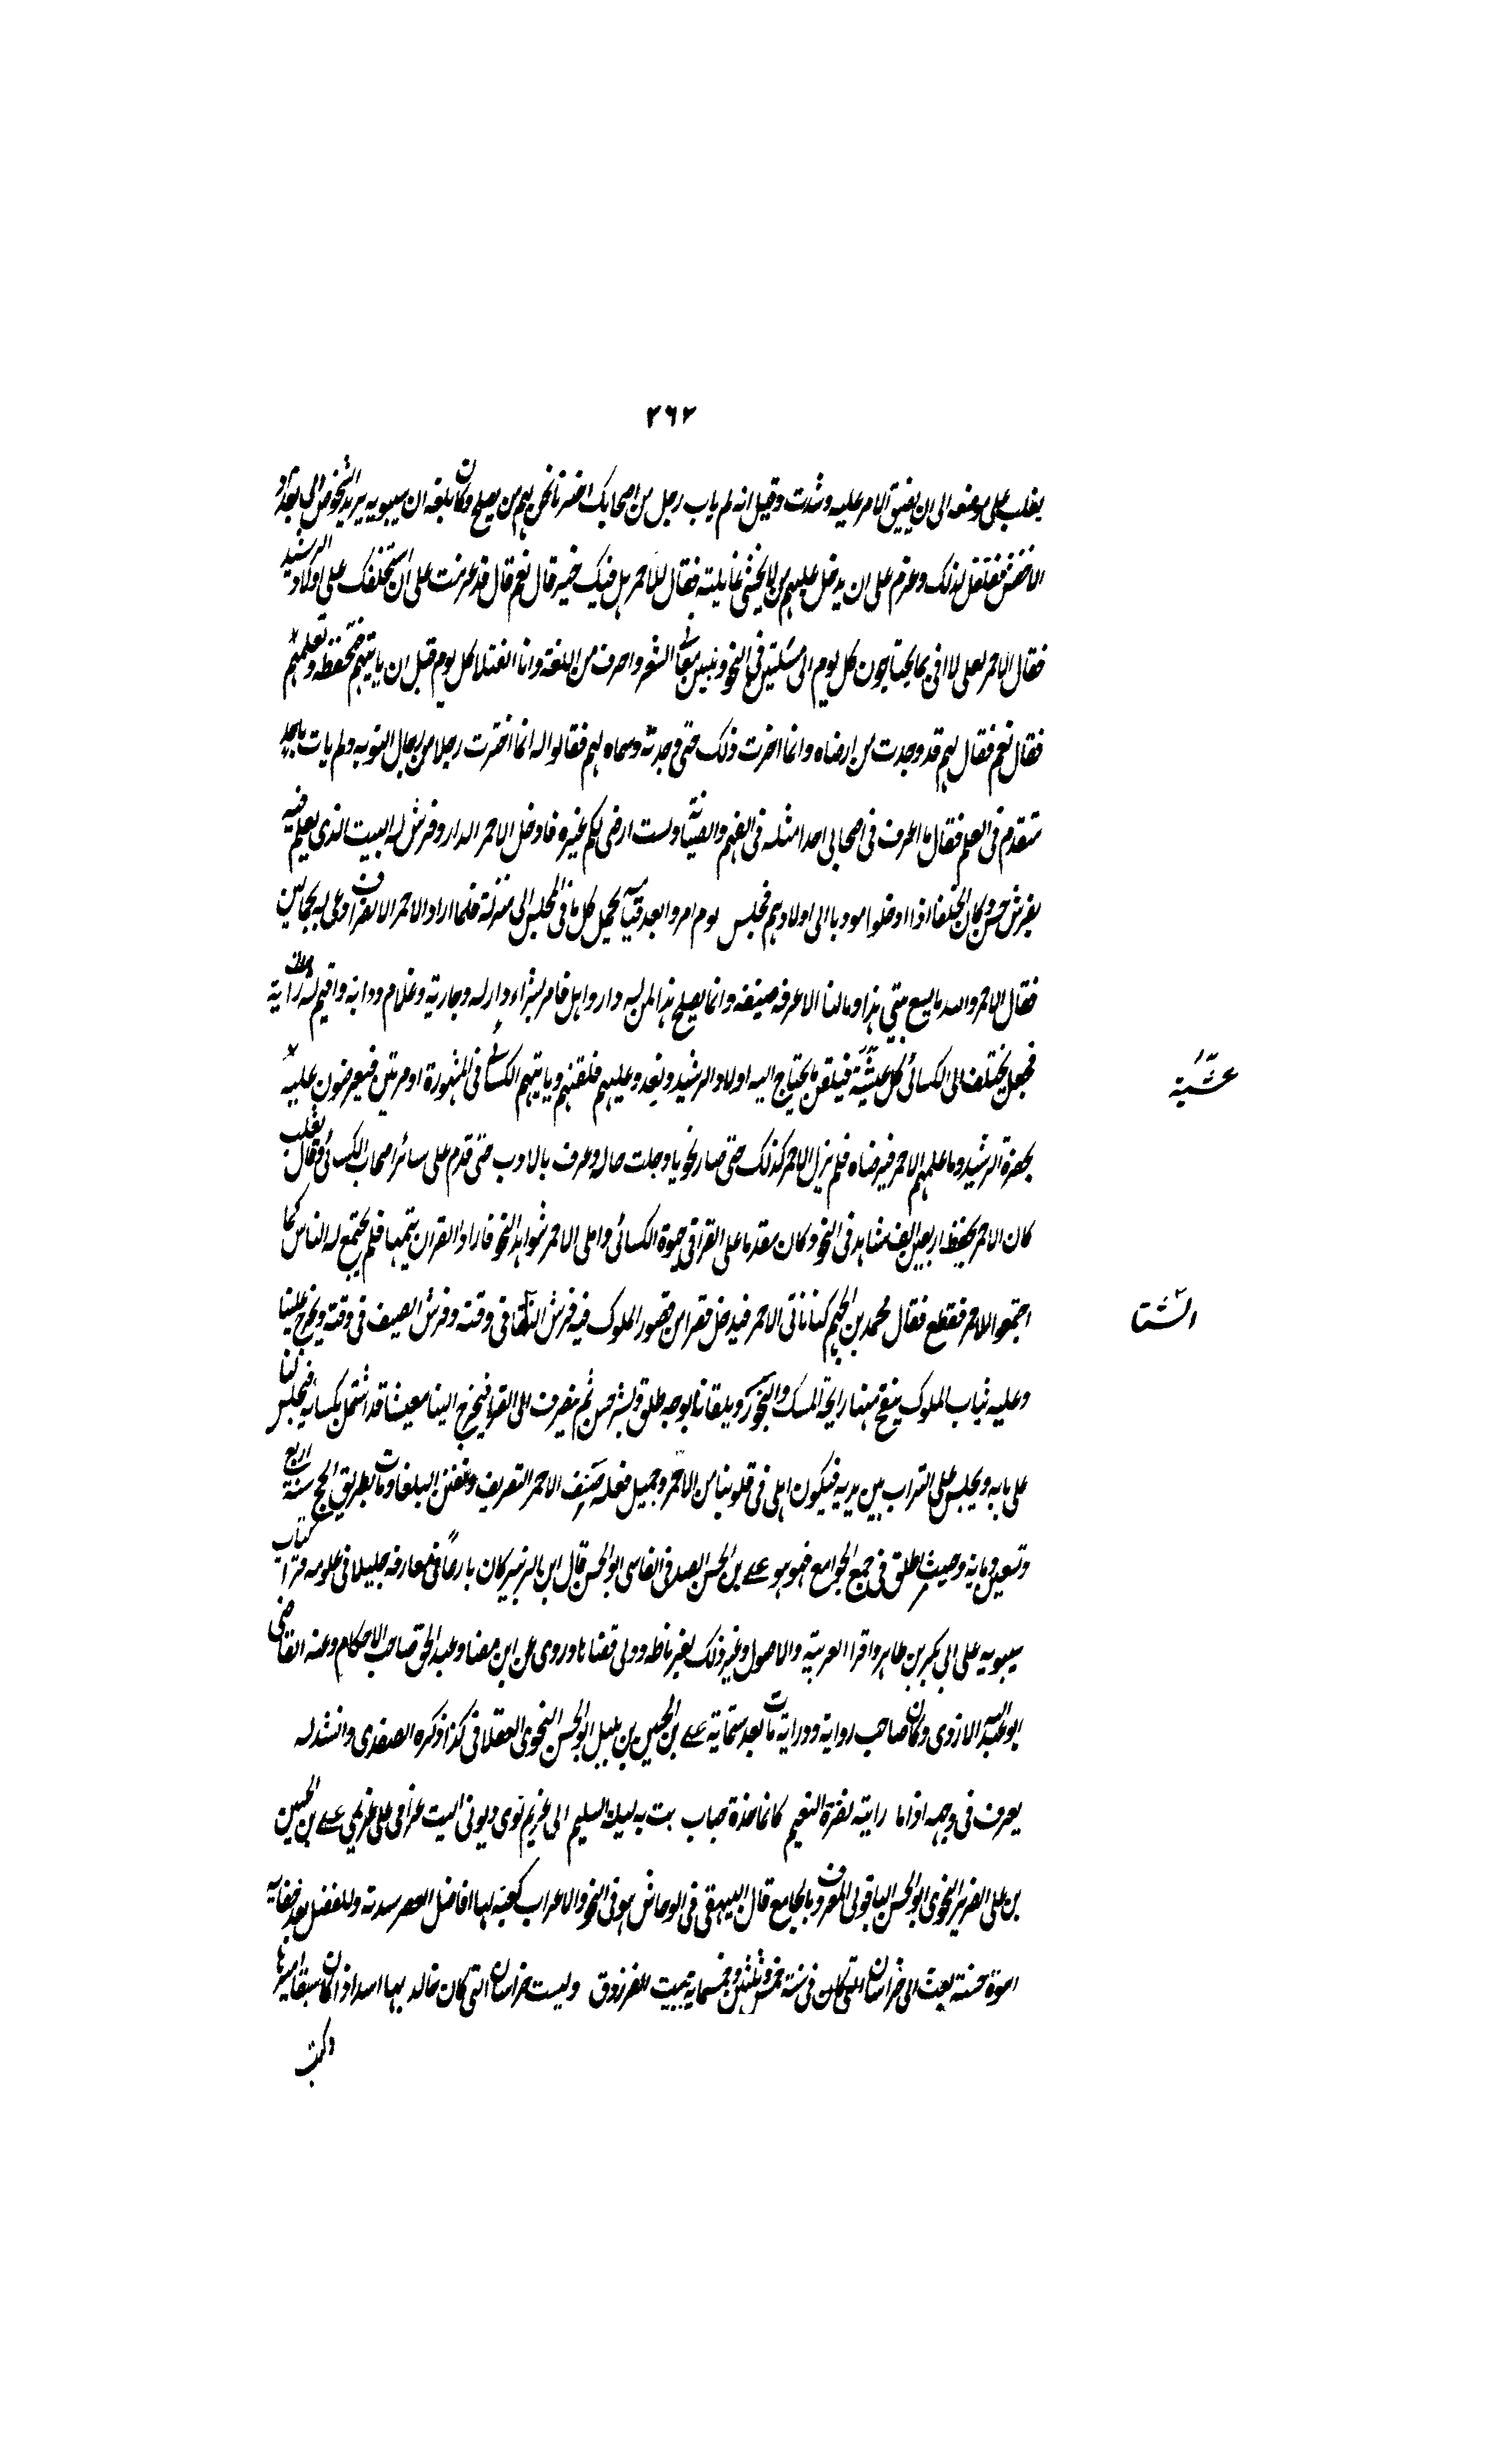 ٢٦٢
يغلب على موضعه الى ان يضيق الامر عليه وشدت وقيل انه لم ياب رجل من اصحابك اخترنا نحن لهم من يصلح وكان بلغه ان سيبويه يريد الشخوص الى بغداد
الاخفش فقلق لذلك وعزم على ان يدخل عليهم من لا يخشى غايلته فقال للاحمر هل فيك خير قال نعم قال قد عزمت على ان استخلفك على اولاد الرشيد
فقال الاحمر لعلى لا افى بما يحتاجون كل يوم الى مسئلتين فى النحو وبيتين من معانى الشعر واحرف من اللغة وانا القنك كل يوم قبل ان ياتيهم فتحفظه وتعلمهم
فقال نعم فقال لهم قد وجدت من ارضاه وانما اخرت ذلك حتى وجدته وسماه لهم فقالوا له انما اخترت رجلا من رجال النوبه ولم يات باحد
متقدم فى العلم فقال ما اعرف فى اصحابى احدا مثله فى الفهم والصيانة ولست ارضى لكم غيره فادخل الاحمر الدار وفرش له البيت الذى يعلم فيه
بفرش حسن وكان الخلفا اذا ادخلوا مودبا الى اولادهم فجلس يوم امروا بعد قيامه بحمل كل ما فى المجلس الى منزله فلما اراد الاحمر الانصراف دعى له بحمالين
فقال الاحمر والله ما يسع بيتى هذا وما لنا الا غرفه ضيقه وانما يصلح هذا لمن له دار واهل فامر بشراء دار له وجارية وغلام ودابه واقيم له راتبة
فجعل يختلف الى الكسائى كل عشيّة فيلقن ما يحتاج اليه اولاد الرشيد ويغدو عليهم فلقنهم وياتيهم الكسائى فى الشهر مرة او مرتين فيعرضون عليه
عشيّة
بحضرة الرشيد وما علمهم الاحمر فيرضاه فلم يزل الاحمر كذلك حتى صار نحويا وجلت حاله وعرف بالادب حتى قدم على سائر اصحاب الكسائى وقال ثعلب
كان الاحمر يحفظ اربعين الف شاهد فى النحو وكان مقدما على الفرا فى حيوة الكسائى واملى الاحمر شواهد النحو فاراد الفرا ان يتمها فلم يجتمع له الناس كما
اجتمعوا للاحمر فقطع فقال محمد بن الجهم كنا ناتى الاحمر فيدخل قصرا من قصور الملوك فيه فرش الشتا فى وقته وفرش الصيف فى وقته ويخرج علينا
الشتا
وعليه ثياب الملوك ينفح منها رايحة المسك والبخور ويلقانا بوجه طلق وبشر حسن ثم ننصرف الى الفرا فيخرج الينا معبسا قد اشتمل بكسائه فيجلس لنا
على بابه ويجلس على التراب بين يديه فيكون احلى فى قلوبنا من الاحمر وجميل فعله صنف الاحمر التصريف وتفنن البلغا ومات بطريق الحج سنة اربع
وتسعين ومايه وحيث اطلق فى جمع الجوامع فهو هو على بن الحسن الصدفى الفاسى ابو الحسن قال ابن الزبير كان بارعا فى معارفه جليلا فى علومه قرا كتاب
سيبويه على ابى بكر بن طاهر واقرا العربية والاصول وغير ذلك بغرناطه وولى قضاها وروى عن ابن مضا وعبد الحق صاحب الاحكام وعنه القاضى
ابو عبد الله الازدى وكان صاحب رواية ودراية مات بعد ستماية على بن الحسين بن بلبل ابو الحسن النحوى العقلانى كذا ذكره الصفدى وانشد له
يعرف فى وجهه اذا ما رايته نضرة النعيم كانما خده حباب بت به ليلة السليم الى غريم نوى ديونى اليت غرامى على غريمى على بن الحسين
بن على الضرير النحوى ابو الحسن الباقولى المعروف بالجامع قال البيهقى فى الوشاح هو فى النحو والاعراب كعبة لها افاضل العصر سدنة وللفضل بعد خفايه
اسوة حسنة بعث الى خراسان التى كان فى سنة خمس وثلثين وخمسماية ببيت للفرزدق وليست خراسان التى كان خالد بها اسد اذ كان سيفا اميرها
وكتب